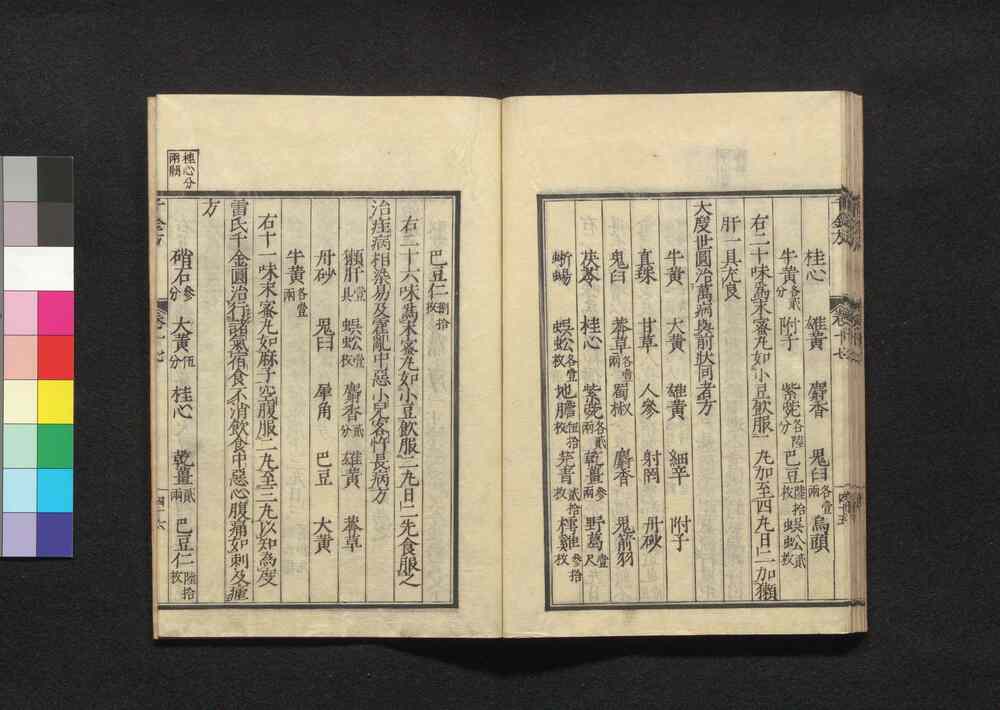 桂心 雄黄 麝香 鬼臼各壹兩 烏頭
牛黄各貳分 附子 紫菀各陸分 巴豆陸拾枚 蜈蚣貳枚
右二十味為末蜜丸如小豆飲服一丸加至四丸日二加獺
肝一具尤良
大度世圓治萬病與前狀同者方
牛黄 大黄 雄黄 細辛 附子
真珠 甘草 人參 射罔 丹砂
鬼臼 莽草各壹兩 蜀椒 麝香 鬼箭羽
茯苓 桂心 紫菀各貳兩 乾薑參兩 野葛壹尺
蜥蜴 蜈蚣各壹枚 地膽伍拾枚 芫青貳拾枚 樗雞參拾枚
千金方
卷十七
四十五
巴豆仁捌拾枚
右二十六味為末蜜丸如小豆飲服二丸日二先食服之
治疰病相染易及霍亂中惡小兒客忤長病方
獺肝壹具 蜈蚣壹枚 麝香貳分 雄黄 莽草
丹砂 鬼臼 犀角 巴豆 大黄
牛黄各壹兩
右十一味末蜜丸如麻子空腹服二丸至三丸以知為度
雷氏千金圓治行諸氣宿食不消飲食中惡心腹痛如刺及瘧
方
硝石參分 大黄伍分 桂心 乾薑貳兩 巴豆仁陸拾枚
千金方
卷十七
四十六
桂心分
兩闕